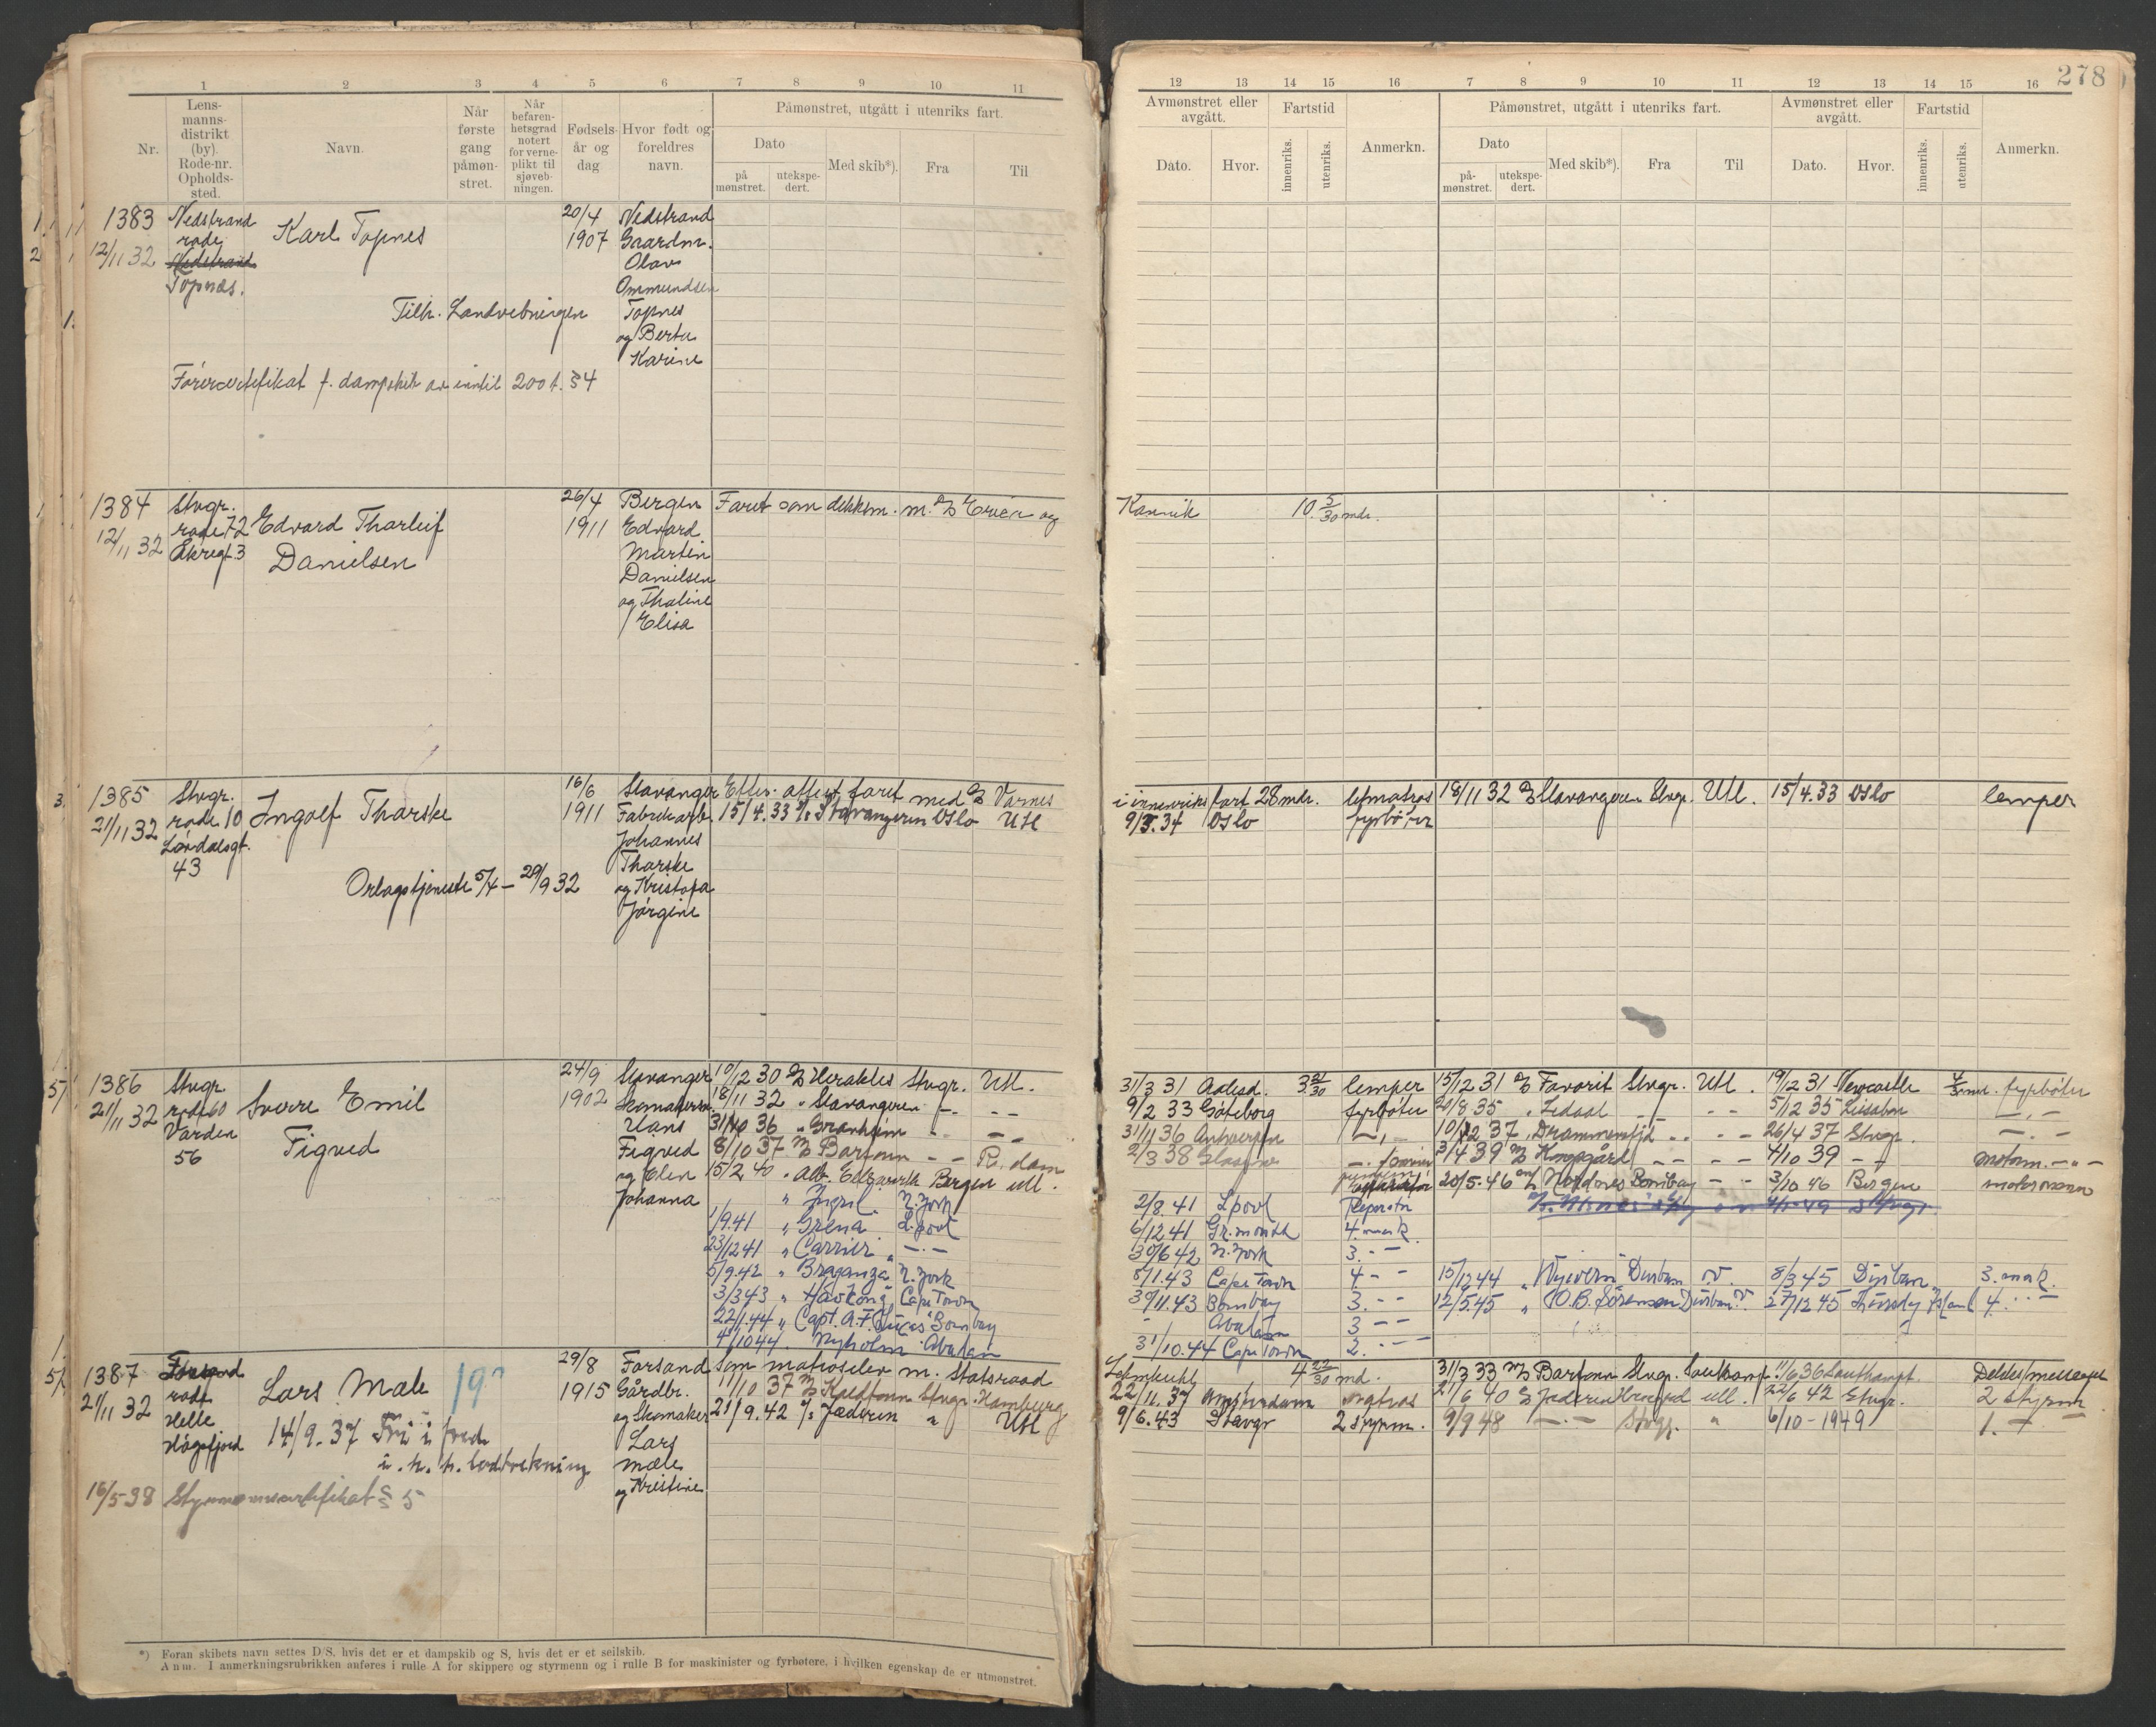 278
1 2 3 4 5 6 7 8 9 10 11
Nr.
Lens-
manns-
distrikt
(by).
Rode-nr.
Opholds-
sted.
Navn.
Når
første
gang
påmøn-
stret.
Når
befaren-
hetsgrad
notert
for verne-
plikt til
sjøveb-
ningen.
Fødsels-
år og
dag
Hvor født og
foreldres
navn.
Påmønstret, utgått i utenriks fart.
Dato
på
mønstret.
utekspe-
dert.
Med skib*).
Fra
Til
12 13 14 15 16 7 8 9 10 11 12 13 14 15 16
Avmønstret eller
avgått.
Dato. Hvor.
Fartstid
innenriks. utenriks.
Anmerkn.
Påmønstret, utgått i utenriks fart.
Dato
på-
mønstret.
utekspe-
dert.
Med skib*). Fra Til
Avmønstret eller
avgått.
Dato. Hvor.
Fartstid
innenriks. utenriks.
Anmerkn.
1383
12/11 32
Nedstrand
rode
Nedstrand
Topnes.
Karl Topnes
20/4
1907
Nedstrand
Gaardm.
Olav
Ommundsen
Topnes
og Berta
Karine
Tilh. Landvebningen
Førercertifikat f. dampskib av inntil 200 t. 34
1384
12/11 32
Stvgr.
rode 72
Åkregt. 3
Edvard Tharleif
Danielsen
26/4
1911
Bergen
Edvard
Martin
Danielsen
og Thaline
Elisa
Faret som dekksm. m. D/S Erviken og
Kannik 10 5/30 mdr.
1385
21/11 32
Stvgr.
rode 10
Lørdalsgt.
43
Ingolf Tharske
16/6
1911
Stavanger
Fabrikarb.
Johannes
Tharske
og Kristofa
Jørgine
Orlogstjeneste 5/4 - 29/9 32
Efter attest faret med D/S Varnes
15/4.33 D/S Stavangeren Oslo Utl
i innenriks fart 28 mdr. letmatros 18/11 32 D/S Stavangeren Stvgr. Utl. 15/4.33 Oslo lemper
9/3.34 Oslo fyrbøter
1386
21/11 32
Stvgr.
rode 60
Varden
56
Sverre Emil
Figved
24/9
1902
Stavanger
Skomakersv.
Hans
Figved
og Elen
Johanna
10/12 30 D/S Herakles Stvgr. Utl.
18/11 32 " Stavangeren - - - -
31/10 36 " Granheim - - - -
8/10 37 M/S Bartonn - - R.dam
15/2 40 " Alb. Ellswerth Bergen utl.
" N. York
1/9.41 " Grena L.pool
23/12 41 " Carrier " - - -
5/9.42 " Braganza N. York
3/3 43 " Høvkong Cape Town
22/1.44 " Capt. A.F. Lucas Bombay
4/10 44 " Nyholm Abadan
31/3 31 Aalesd. 3 21/30 lemper 15/12 31 D/S Favorit Stvgr. Utl. 19/12 31 Newcastle fyrbøter
9/2 33 Göteborg fyrbøter 20/8 35 " Ledaal - - - - 5/12 35 Lissabon - " -
31/11 36 Antwerpen - " - 10/12 37 " Drammensfjd - - - - 26/4 37 Stvgr. - " -
2/3 38 Glasgow 3/4 39 M/S Korsgård - - - - 4/10 39 - " - motorm. - " -
20/5.46 M/S Nordnes Bombay - - 3/10 46 Bergen motormann
2/8.41 Lpool Reperatør
6/12 41 4. mask.
30/6 42 N. York 3. - -
8/1.43 Cape Town 4 - - 15/12 44 " Wyvern Durban o.v. 8/3 45 Durban 3. mask.
30/11.43 Bombay 3. - - 12/5 45 " O.B. Sørensen Durban 27/12 45 4. - -
Abadan 3 - -
31/10.44 Cape Town 2. - -
1387
21/11 32
Forsand
rode
Helle
Høgsfjord
Lars Mæle
29/8
1915
Forsand
Gårdbr.
og Skomaker
Lars
Mæle
og Kristine
14/9.37 Fri i fred
i. h. h. lodtrekning
16/5-38 Styrmannscertifikat § 5
Som matroselev m. Statsraad
11/10 37 M/S Haldfonn Stvgr. Hamburg
21/9.42 D/S Jæderen " Utl
Lehmkuhl 4 22/30 md. 31/3 33 M/S Bartonn Stvgr. Southampt. 11/6 36 Southampt.
22/11.37 Amsterdam 21/6 40 D/S Jæderen utl. 22/6 42 Stvgr. 2 styrm
9/6.43 Stavgr 2 styrm. 9/9 48 - " - Stvgr. " 6/10-1949 1. - " -
*) Foran skibets navn settes D/S, hvis det er et dampskib og S, hvis det er et seilskib.
Anm. I anmerkningsrubrikken anføres i rulle A for skippere og styrmenn og i rulle B for maskinister og fyrbøtere, i hvilken egenskap de er utmønstret.